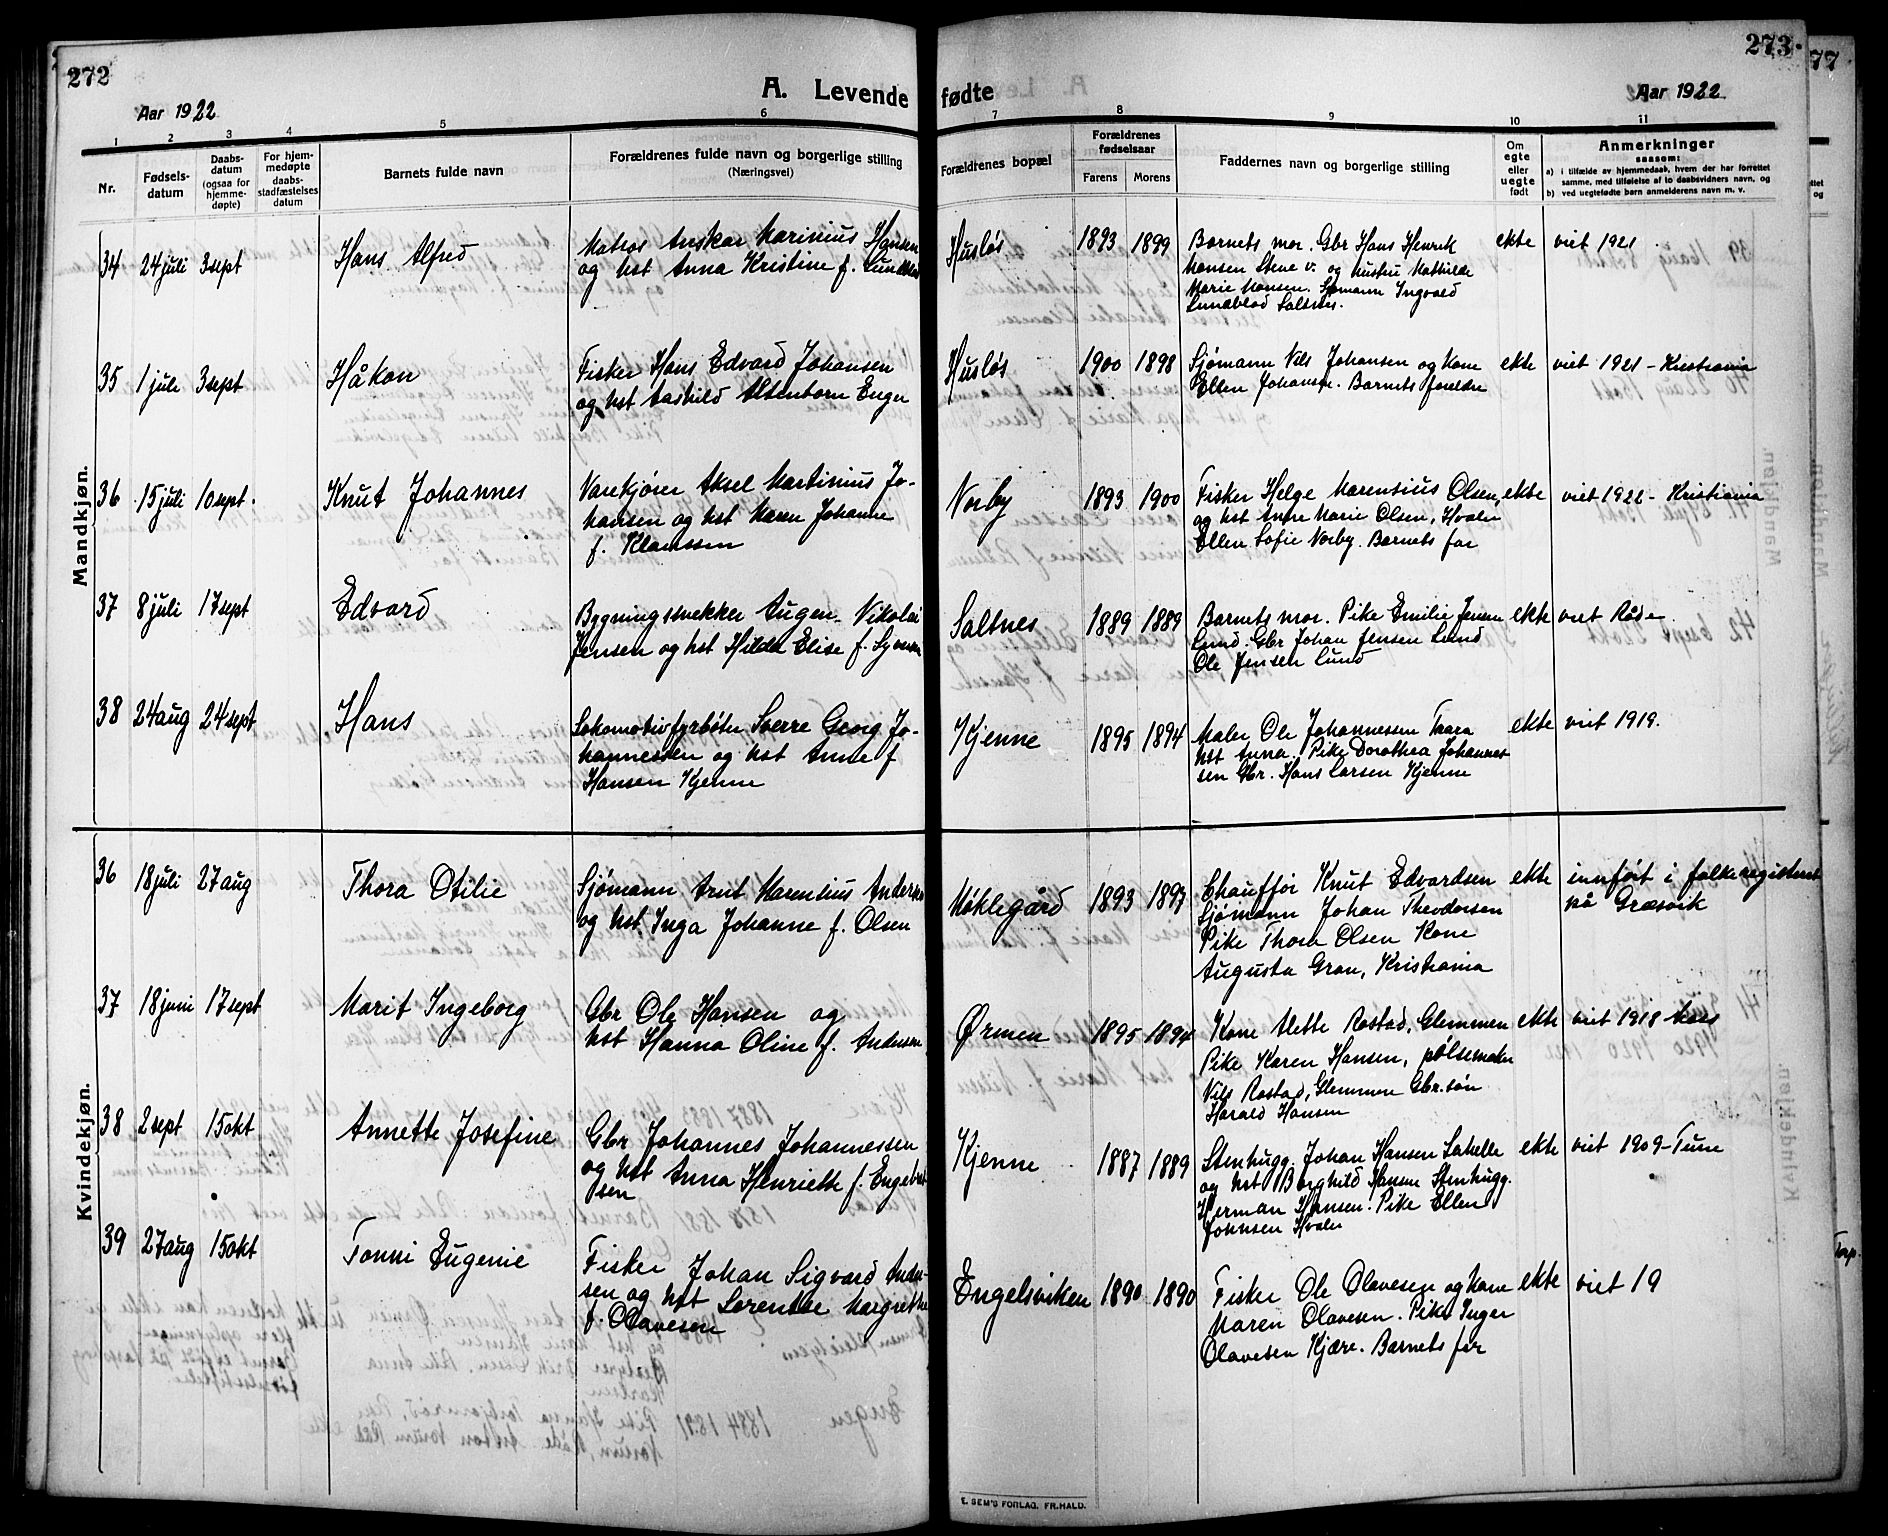 272
Aar 1922
A. Levende fødte
273.
Aar 1922
77
1 2 3 4 5 6 7 8 9 10 11
Nr.
Fødsels-
datum
Daabs-
datum
(ogsaa for
hjemme-
døpte)
For hjem-
medøpte
daabs-
stadfæstelses
datum
Barnets fulde navn
Forældrenes fulde navn og borgerlige stilling
(Næringsvei)
Forældrenes bopæl
Forældrenes
fødselsaar
Farens Morens
Faddernes navn og borgerlige stilling
Om
egte
eller
uegte
født
Anmerkninger
saasom:
a) i tilfælde av hjemmedaab, hvem der har forrettet
samme, med tilføielse af to daabsvidners navn, og
b) ved uegtefødte barn anmelderens navn m. v.
Mandkjøn.
34 24 juli 3 sept
Hans Alfred
Matros Anskar Marinius Hansen
og hst Anna Kristine f. Lundblad
Husløs
1893 1899
Barnets mor. Gbr Hans Henrik
Hansen Stene v. og hustru Mathilde
Marie Hansen. Sjømann Ingvald
Lundblad Saltnes.
ekte
viet 1921
35 1 juli 3 sept
Håkon
Fisker Hans Edvard Johansen
og hst Aashild Altenborn Enger
Husløs
1900 1898
Sjømann Nils Johansen og Kone
Ellen Johansen. Barnets foreldre
ekte
viet 1921 - Kristiania
36 15 juli 10 sept.
Knut Johannes
Varekjører Aksel Martinius Jo-
hansen og hst Maren Johanne
f. Klaussen
Norby
1893 1900
Fisker Helge Marensius Olsen
og hst Anne Marie Olsen, Hvaler
Ellen Sofie Norby. Barnets far
ekte
viet 1922 - Kristiania
37 8 juli 17 sept
Edvard
Bygningssnekker Augen Nikolai
Jensen og hst Hilda Elise f. Syversen
Saltnes
1889 1889
Barnets mor. Pike Emilie Jensen
Lund. Gbr Johan Jensen Lund
Ole Jensen Lund
ekte
viet Råde
38 24 aug 24 sept
Hans
Lokomotivfyrbøter Sverre Georg Jo-
hannessen og hst Anne f
Hansen Kjenne
Kjenne
1895 1894
Maler Ole Johannessen Taara
hst Anna. Pike Dorothea Johannes
sen Gbr. Hans Larsen Kjenne
ekte
viet 1919.
Kvindekjøn.
36 18 juli 27 aug
Thora Otilie
Sjømann Arnt Marenlius Andersen
og hst Inga Johanne f. Olsen
Møklegård
1893 1897
Chauffør Knut Edvardsen
Sjømann Johan Theodorsen
Pike Thora Olsen Kone
Augusta Gran, Kristiania
ekte
innført i folkeregisteret
på Græsvik
37 18 juni 17 sept
Marit Ingeborg
Gbr Ole Hansen og
hst Hanna Oline f. Andersen
Ørmen
1895 1894
Kone Alette Rostad, Glemmen
Pike Karen Hansen, pølsemaker
Nils Rostad, Glemmen Gbr.søn
Harald Hansen
ekte
viet 1918
38 2 sept 15 okt
Annette Josefine
Gbr Johannes Johannessen
og hst Anna Henriette f. Engebret
sen
Kjenne
1887 1889
Stenhugg. Johan Hansen
og hst Borghild Hansen Stenhugg.
Herman Hansen. Pike Ellen
Johnsen Hvaler
ekte
viet 1909 - Tune
39 27 aug 15 okt
Tonni Eugenie
Fisker Johan Sigvard Ander-
sen og hst Lorentse Margrethe
f. Olavesen
Engelsviken
1890 1890
Fisker Ole Olavesen og Kone
Maren Olavesen. Pike Inger
Olavesen Kjære. Barnets far
ekte
viet 19
E. SEM'S FORLAG, FR.HALD.